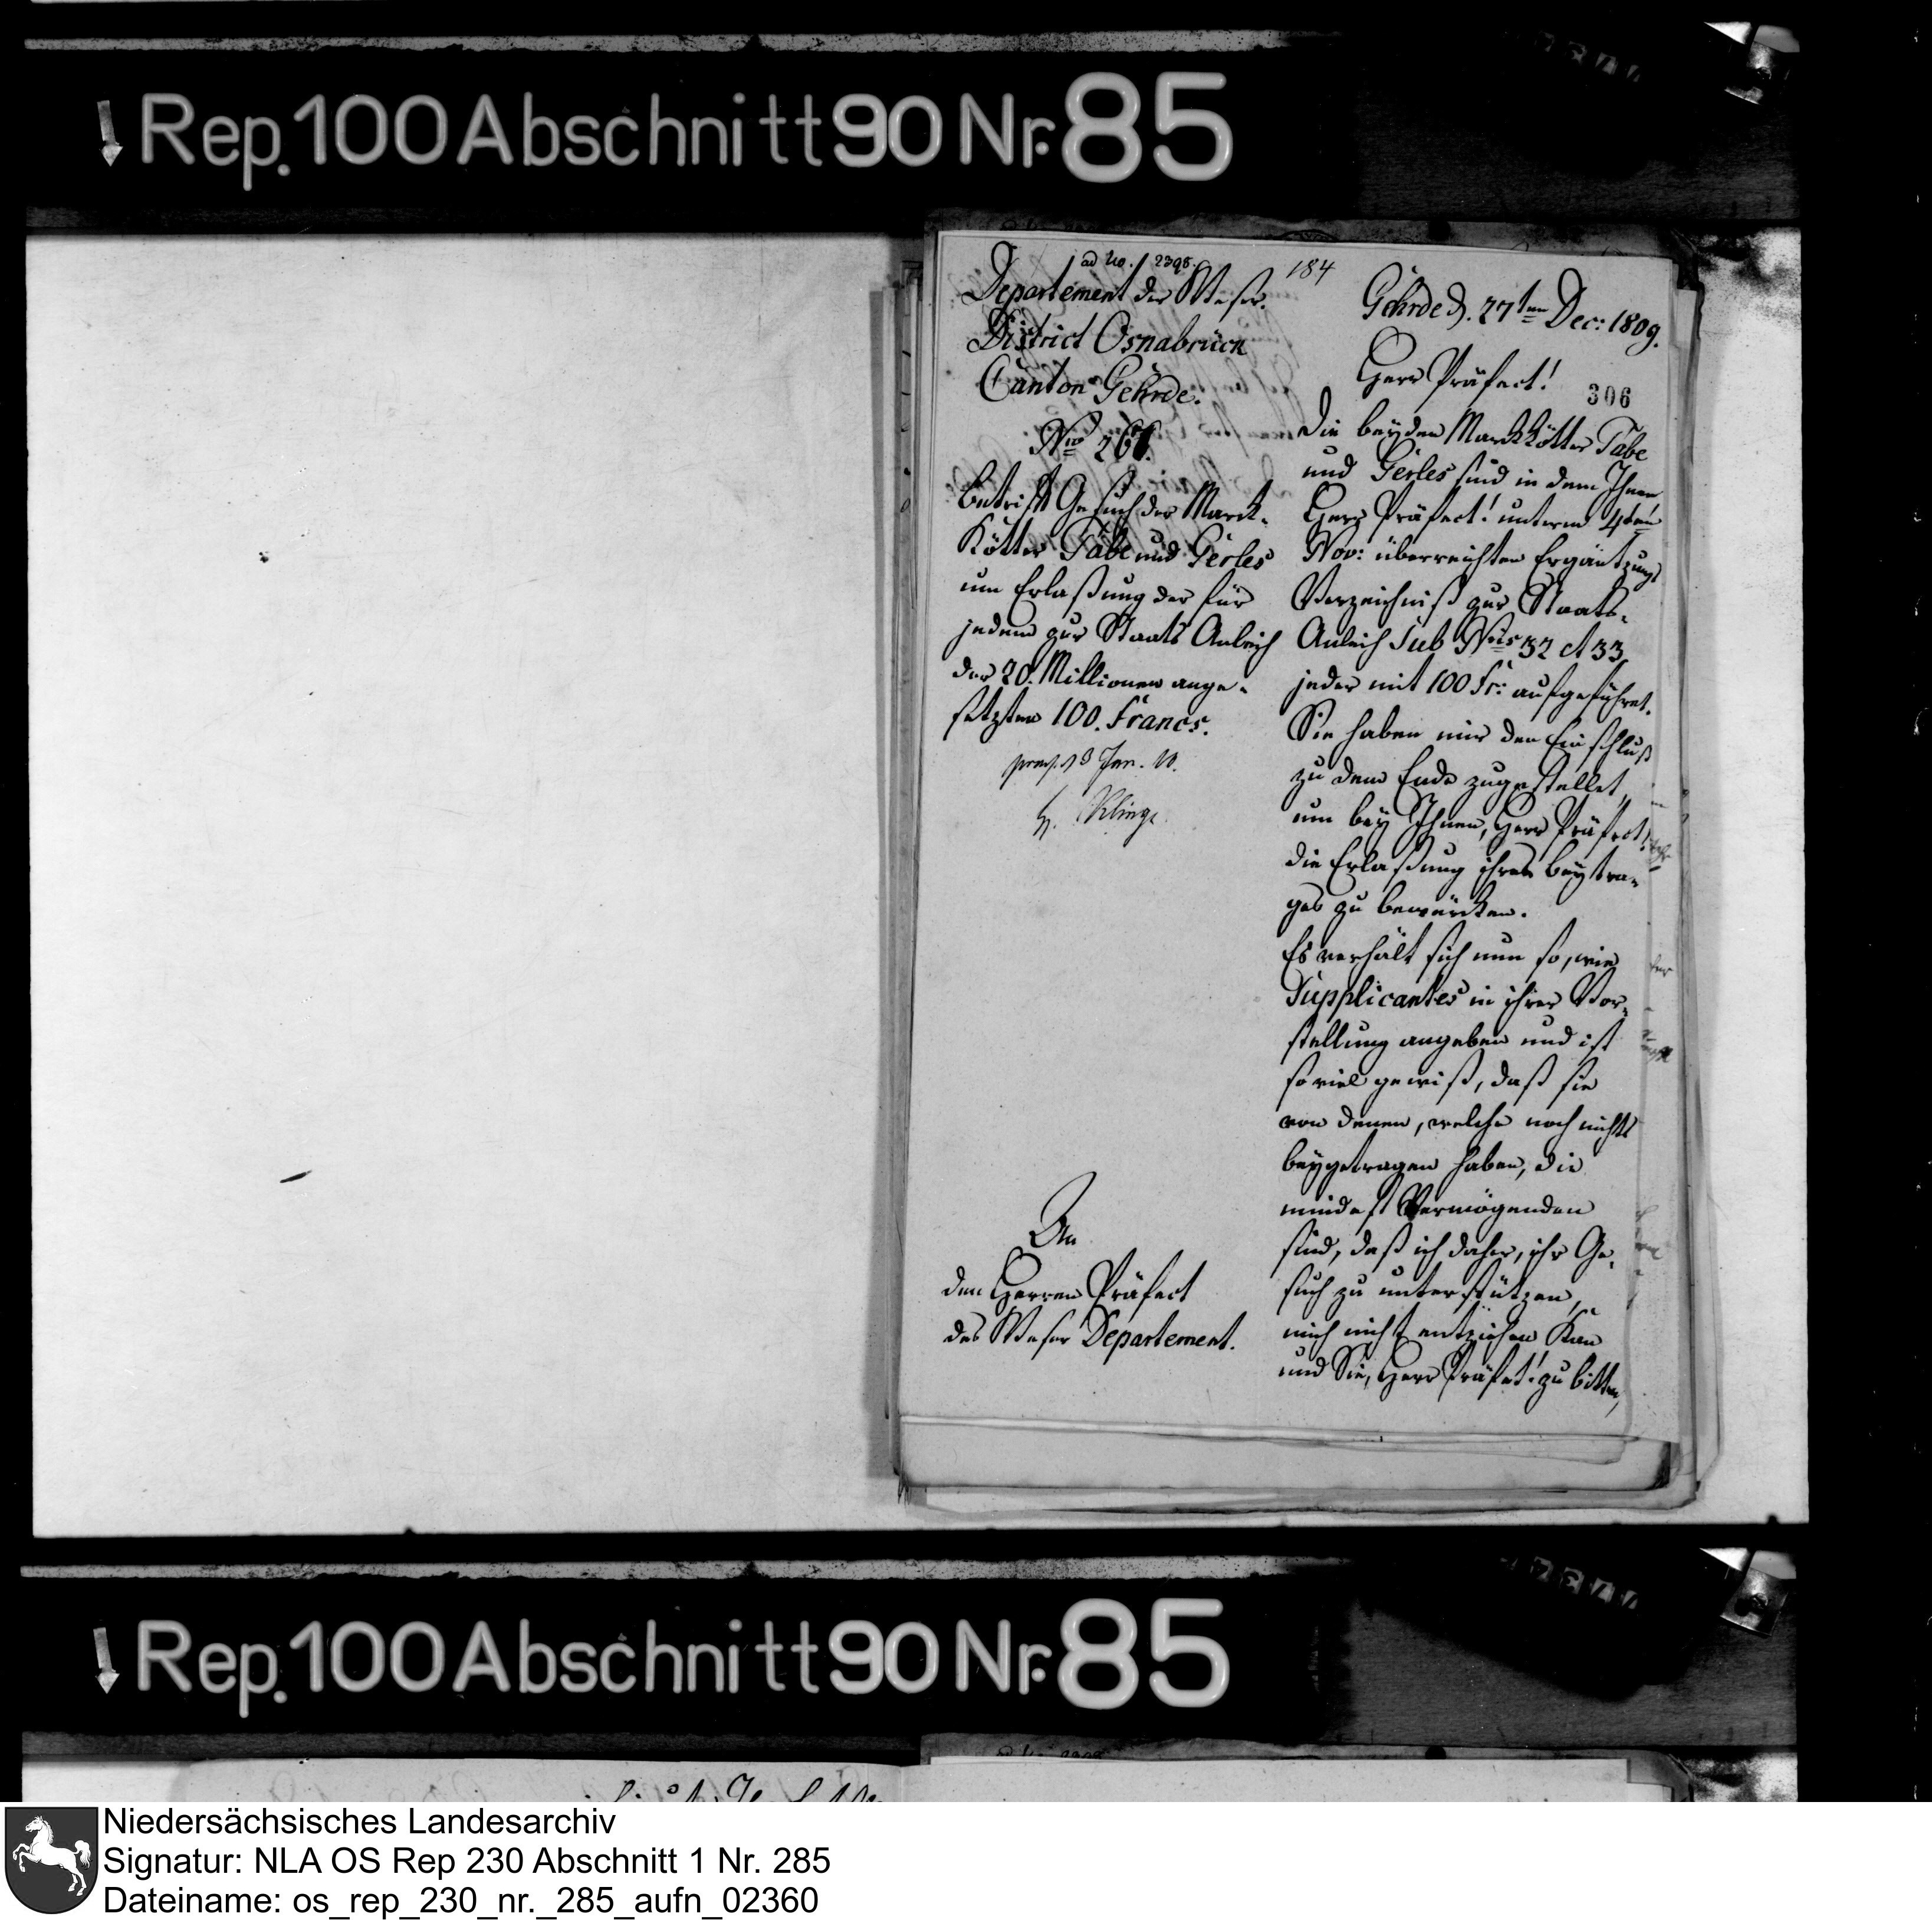 Rep. 100 Abschnitt 90 Nr. 85
ad No. 2398.
184
Departement der Weser.
District Osnabrück
Canton Gehrde.
No 261.
Betrifft Gesuch der Marck-
Kötter Tabe und Gerles
um Erlaßung der für
jedem zur Staats Anleih
der 20. Millionen ange-
setzten 100. Francs.
praes. 13 Jan. 10.
H. Klinge
An
den Herren Präfect
des Weser Departement.
Gehrde d. 27ten Dec: 1809.
Herr Präfect!
306
Die beyden Marckkötter Tabe
und Gerles sind in dem Ihnen
Herr Präfect! unterm 4ten
Nov: überreichten Ergäntzungs
Verzeichniß zur Staats-
Anleih sub Nris 32 et 33
jeder mit 100 Fr: aufgeführet.
Sie haben mir den Einschluß
zu dem Ende zugestellet,
um bey Ihnen, Herr Präfect!
die Erlaßung ihres Beytra-
ges zu bewürcken.
Es verhält sich nun so, wie
Supplicantes in ihrer Vor-
stellung angeben und ist
so viel gewiß, daß sie
von denen, welche noch nichts
beygetragen haben, die
mindest Vermögenden
sind, daß ich daher, ihr Ge-
such zu unterstützen,
mich nicht entziehen kan
und Sie, Herr Präfect! zu bitten,
Rep. 100 Abschnitt 90 Nr. 85
Niedersächsisches Landesarchiv
Signatur: NLA OS Rep 230 Abschnitt 1 Nr. 285
Dateiname: os_rep_230_nr._285_aufn_02360